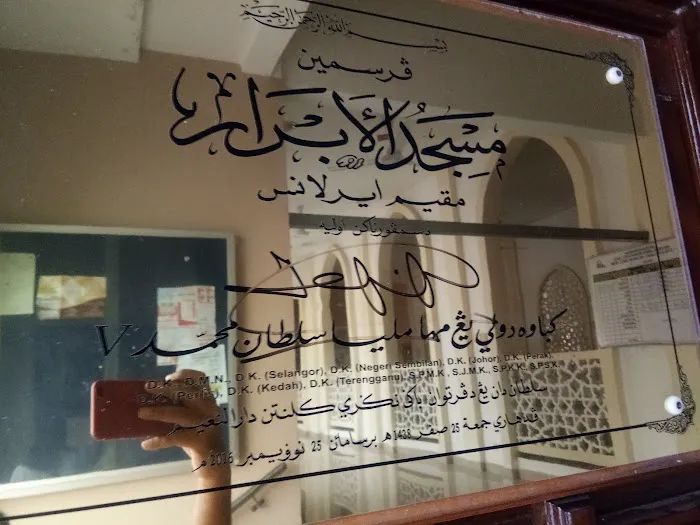 بسم الله الرحمن الرحيم
ڤرسمين
مَسْجِدُ الأَبْرَار
مقيم ايرلانس
دسمڤورناكن اوليه
كباوه دولي يڠ مها مليا سلطان محمّد V
(D.K., D.M.N., D.K. (Selangor), D.K. (Negeri Sembilan), D.K. (Johor), D.K. (Perak),
D.K. (Perlis), D.K. (Kedah), D.K. (Terengganu), S.P.M.K., S.J.M.K., S.P.K.K., S.P.S.K.
سلطان دان يڠ دڤرتوان باݢي نݢري كلنتن دارالنعيم
ڤدهاري جمعة 25 صفر 1438هـ برسامأن 25 نوۏيمبر 2016م